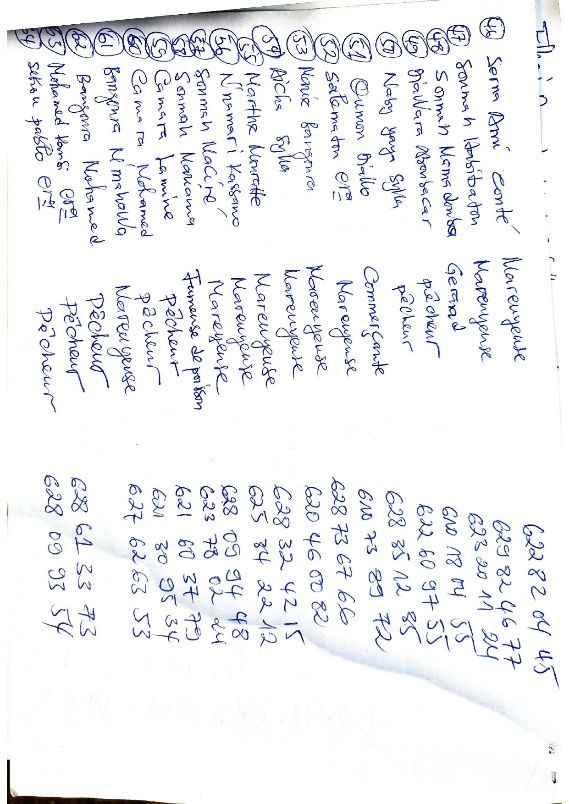 46 Soma Ami Conté Mareyeuse 622 82 04 45
47 Sonmah Habibaton Mareyeuse 629 82 46 77
48 Sonmah Mamadouba Gerand 623 20 11 24
49 Diallara Aboubacar pêcheur 610 18 04 55
50 Naby yaya Sylla pêcheur 622 60 97 55
51 Oumon Diallo Commerçante 628 35 12 85
52 Salematon era Mareyeuse 610 73 89 72
53 Nana Bangoura Mareyeuse 628 73 67 66
54 Aicha Sylla Mareyeuse 620 46 00 82
55 Martine Monette Mareyeuse 628 32 42 15
56 N'namari Kassano Mareyeuse 625 34 22 12
57 Sonmah Maciré Mareyeuse 628 09 94 48
58 Sonmah Mariama Fumeuse de poison 623 78 02 24
59 Camara Lamine pêcheur 621 60 37 79
60 Camara Mohamed pêcheur 621 30 95 34
61 Bangoura N'mahawa Mareyeuse 627 62 63 53
62 Bangoura Mohamed Pêcheur
63 Mohamed era Pêcheur 628 61 33 73
64 Sekou pablo era Pêcheur 628 09 93 54